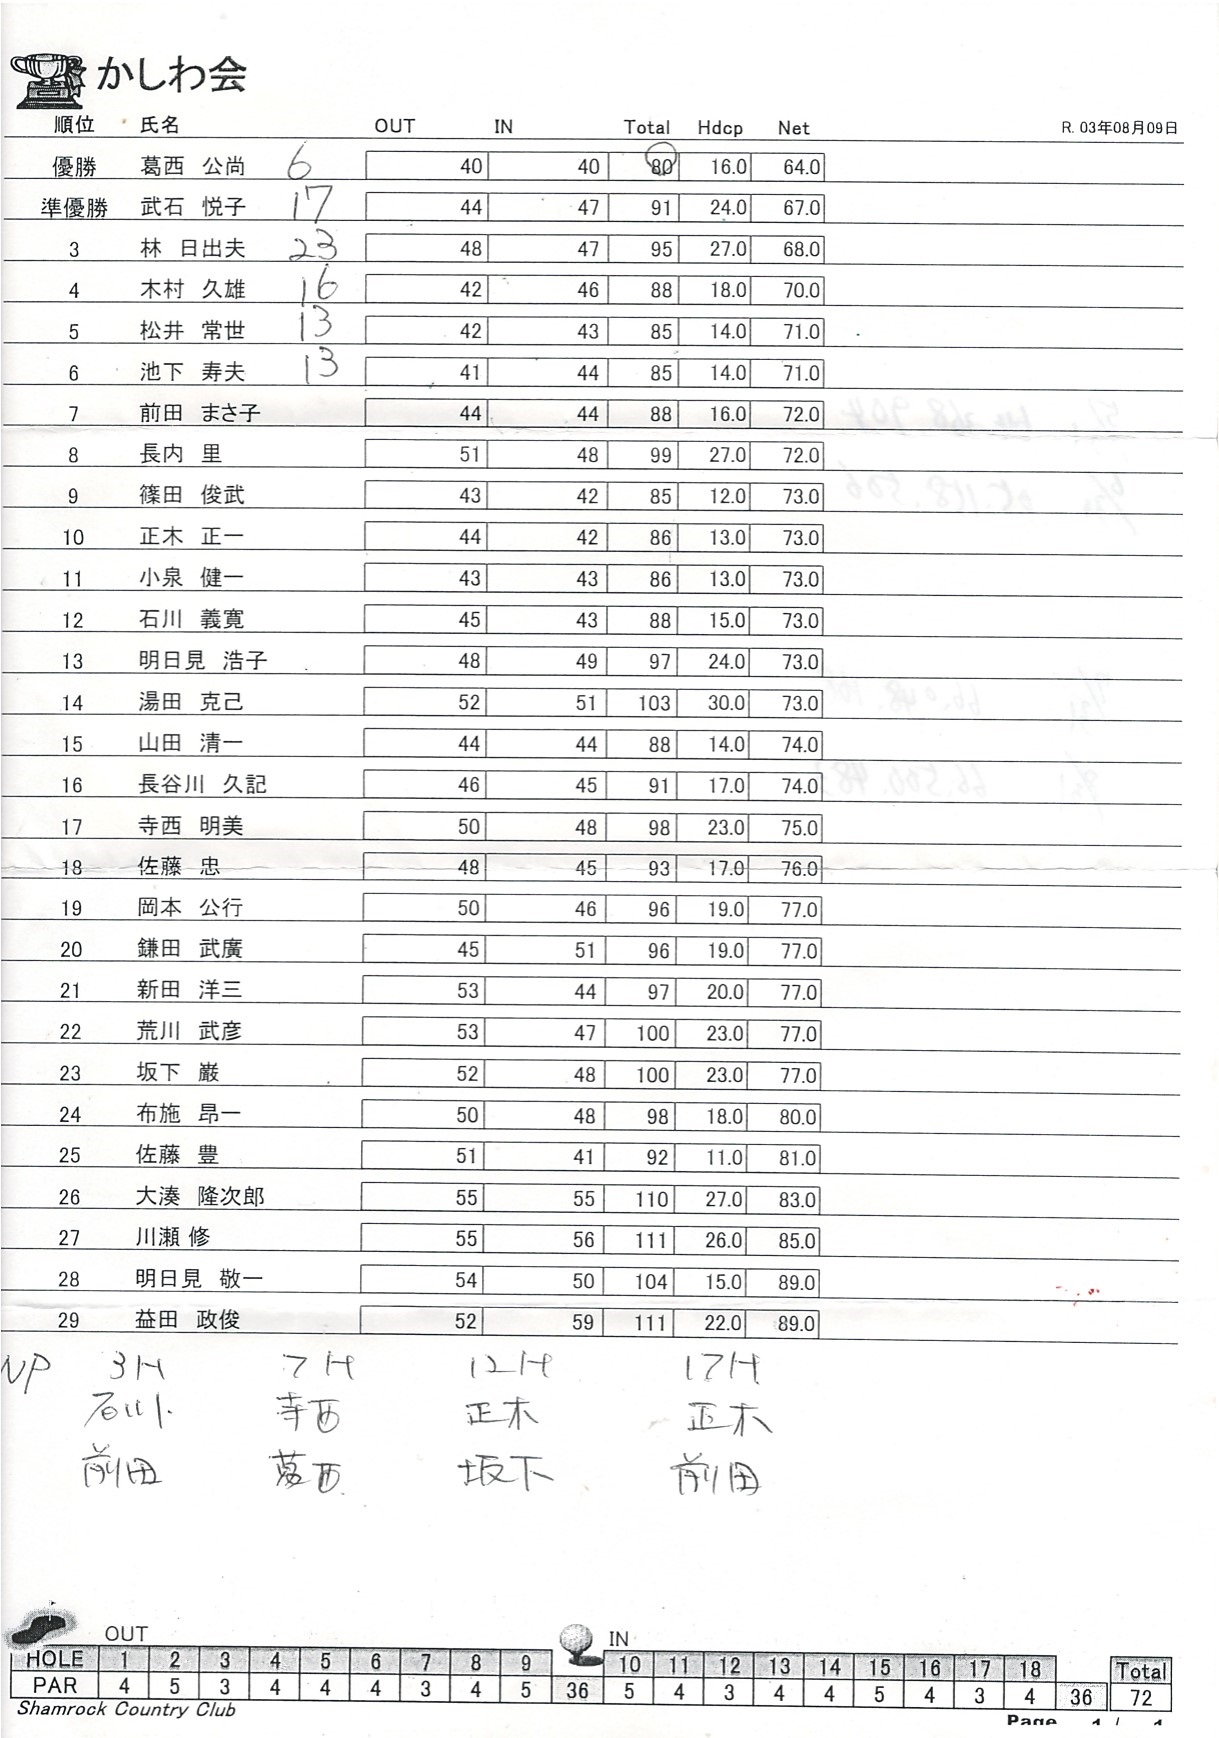 かしわ会
順位 氏名 OUT IN Total Hdcp Net R. 03年08月09日
優勝 葛西 公尚 6 40 40 80 16.0 64.0
準優勝 武石 悦子 17 44 47 91 24.0 67.0
3 林 日出夫 23 48 47 95 27.0 68.0
4 木村 久雄 16 42 46 88 18.0 70.0
5 松井 常世 13 42 43 85 14.0 71.0
6 池下 寿夫 13 41 44 85 14.0 71.0
7 前田 まさ子 44 44 88 16.0 72.0
8 長内 里 51 48 99 27.0 72.0
9 篠田 俊武 43 42 85 12.0 73.0
10 正木 正一 44 42 86 13.0 73.0
11 小泉 健一 43 43 86 13.0 73.0
12 石川 義寛 45 43 88 15.0 73.0
13 明日見 浩子 48 49 97 24.0 73.0
14 湯田 克己 52 51 103 30.0 73.0
15 山田 清一 44 44 88 14.0 74.0
16 長谷川 久記 46 45 91 17.0 74.0
17 寺西 明美 50 48 98 23.0 75.0
18 佐藤 忠 48 45 93 17.0 76.0
19 岡本 公行 50 46 96 19.0 77.0
20 鎌田 武廣 45 51 96 19.0 77.0
21 新田 洋三 53 44 97 20.0 77.0
22 荒川 武彦 53 47 100 23.0 77.0
23 坂下 巌 52 48 100 23.0 77.0
24 布施 昂一 50 48 98 18.0 80.0
25 佐藤 豊 51 41 92 11.0 81.0
26 大湊 隆次郎 55 55 110 27.0 83.0
27 川瀬 修 55 56 111 26.0 85.0
28 明日見 敬一 54 50 104 15.0 89.0
29 益田 政俊 52 59 111 22.0 89.0
NP 3H 7H 12H 17H
石川 寺西 正木 正木
前田 葛西 坂下 前田
OUT IN
HOLE 1 2 3 4 5 6 7 8 9 10 11 12 13 14 15 16 17 18 Total
PAR 4 5 3 4 4 4 3 4 5 36 5 4 3 4 4 5 4 3 4 36 72
Shamrock Country Club
Page 1 / 1